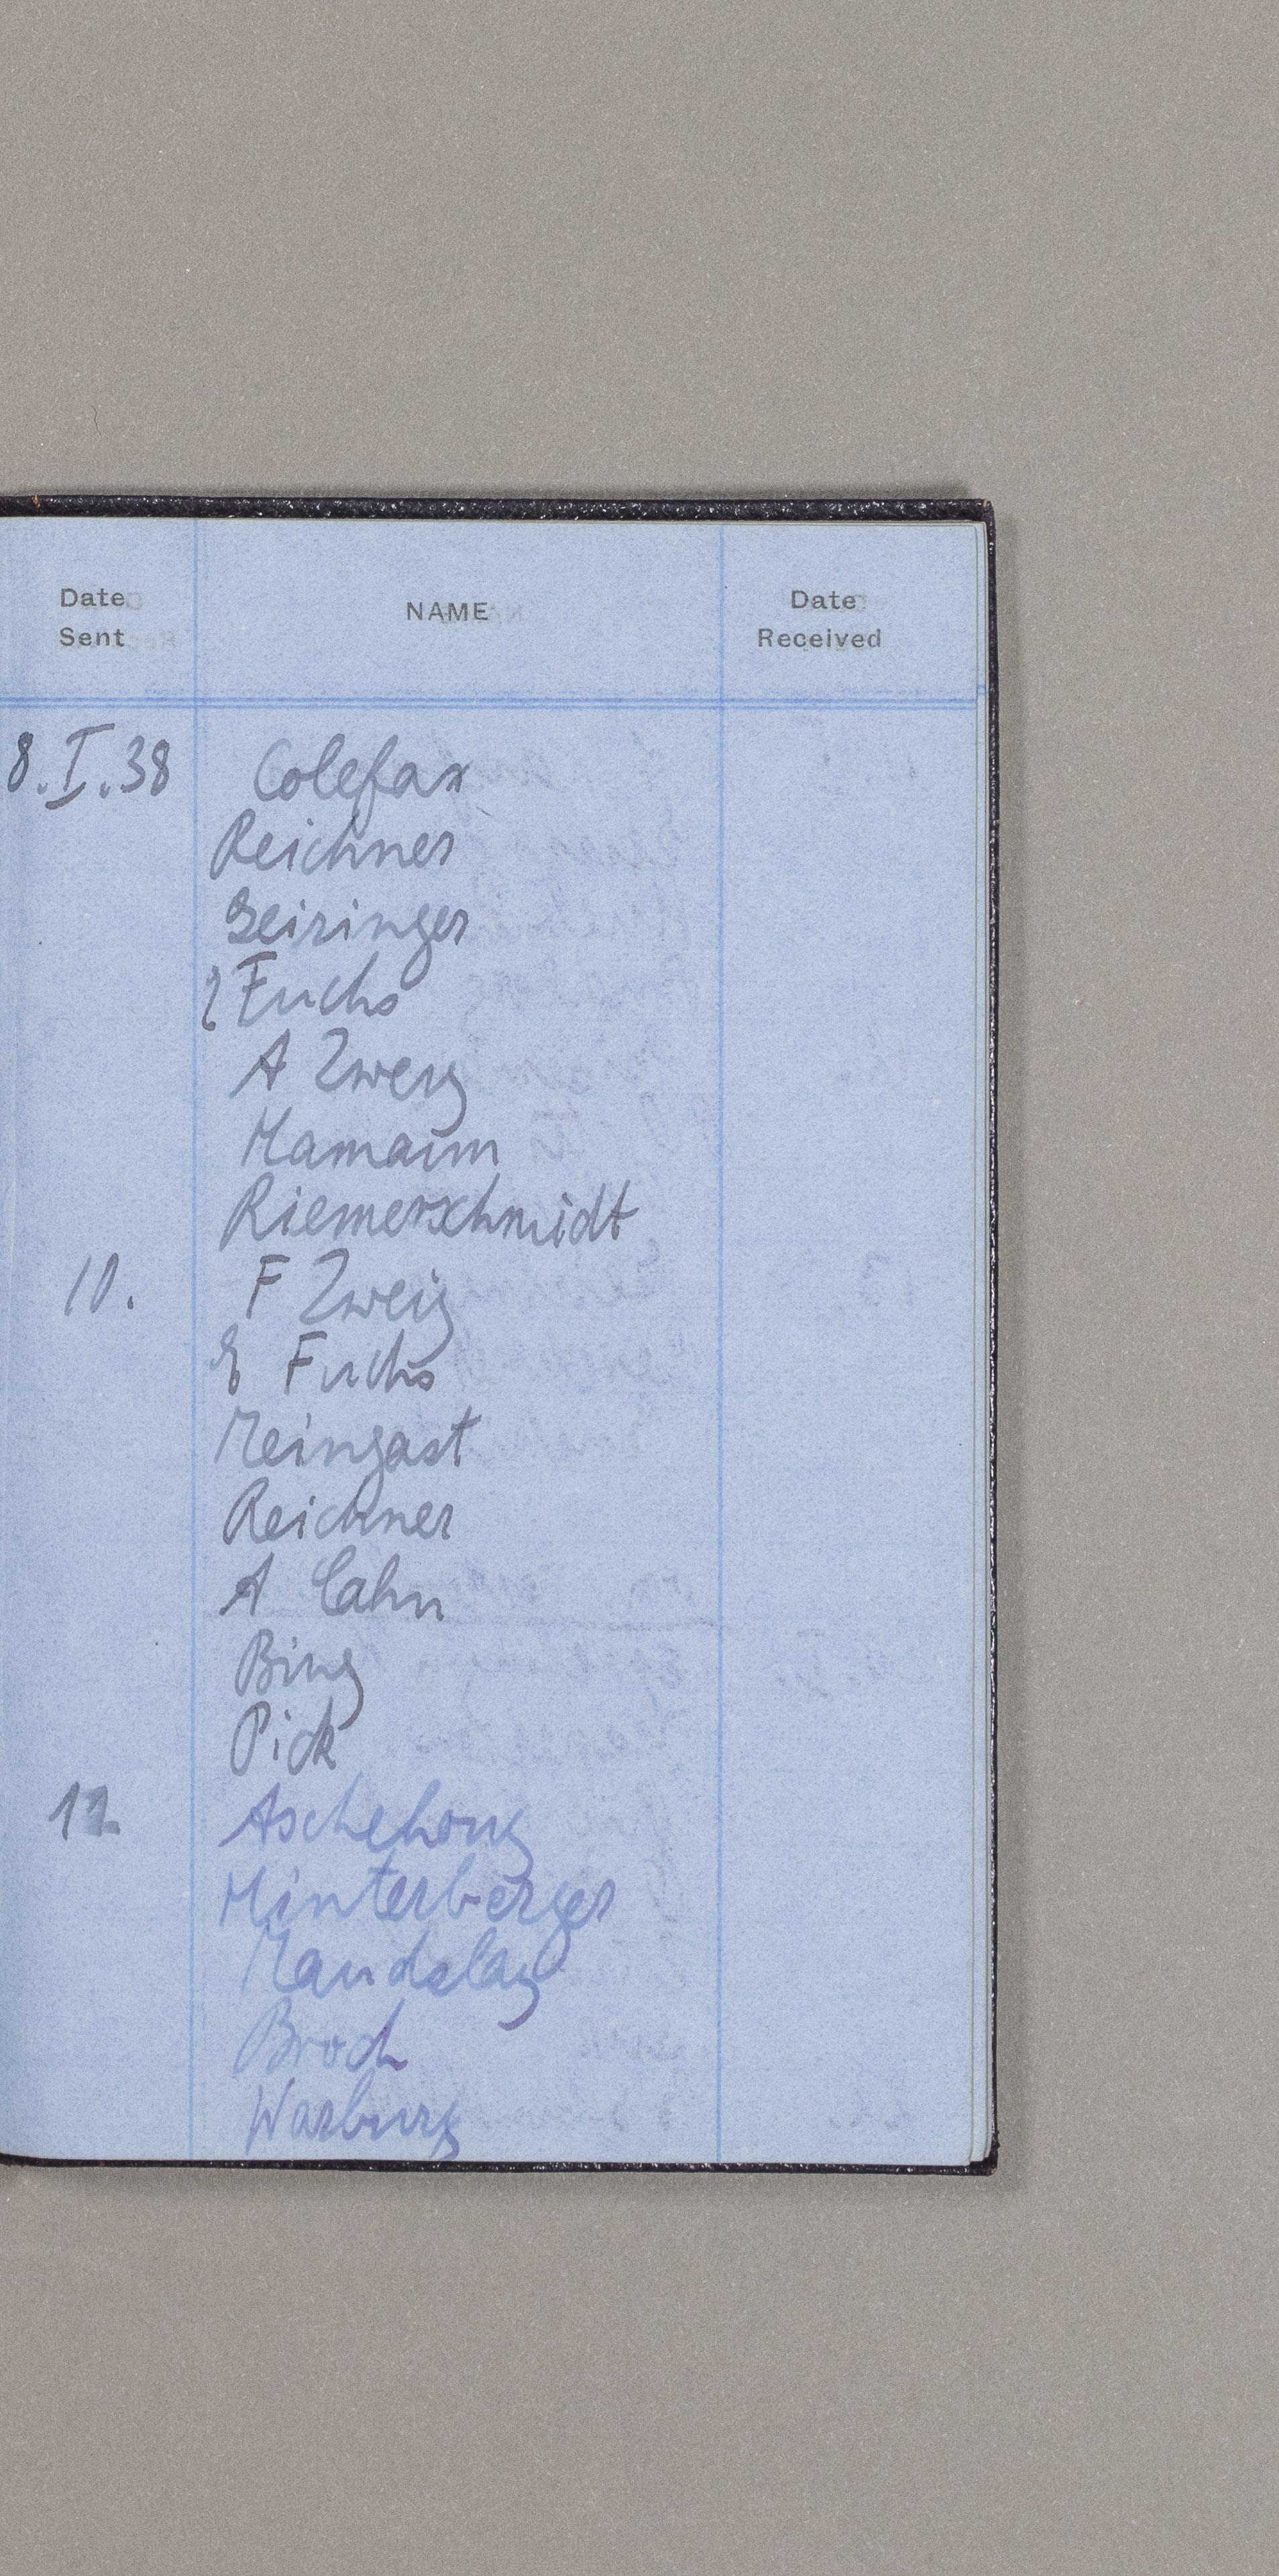 Date Sent NAME Date Received
8.I.38 Colefax
Reichner
Geiringer
Fuchs
A Zweig
Mamam
Riemerschmidt
10. F Zweig
E Fuchs
Meingast
Reichner
A Cahn
Bing
Pick
12 Aschehoug
Hinterberger
Broch
Warburg